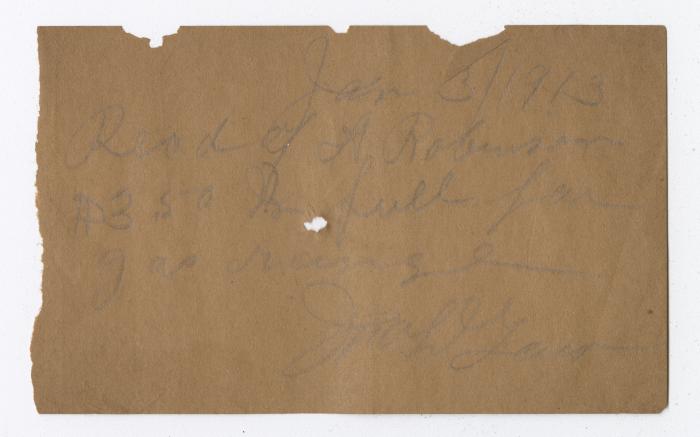 Jan 3/1913
Recd of A Robinson
$3.50 In full for
gas range